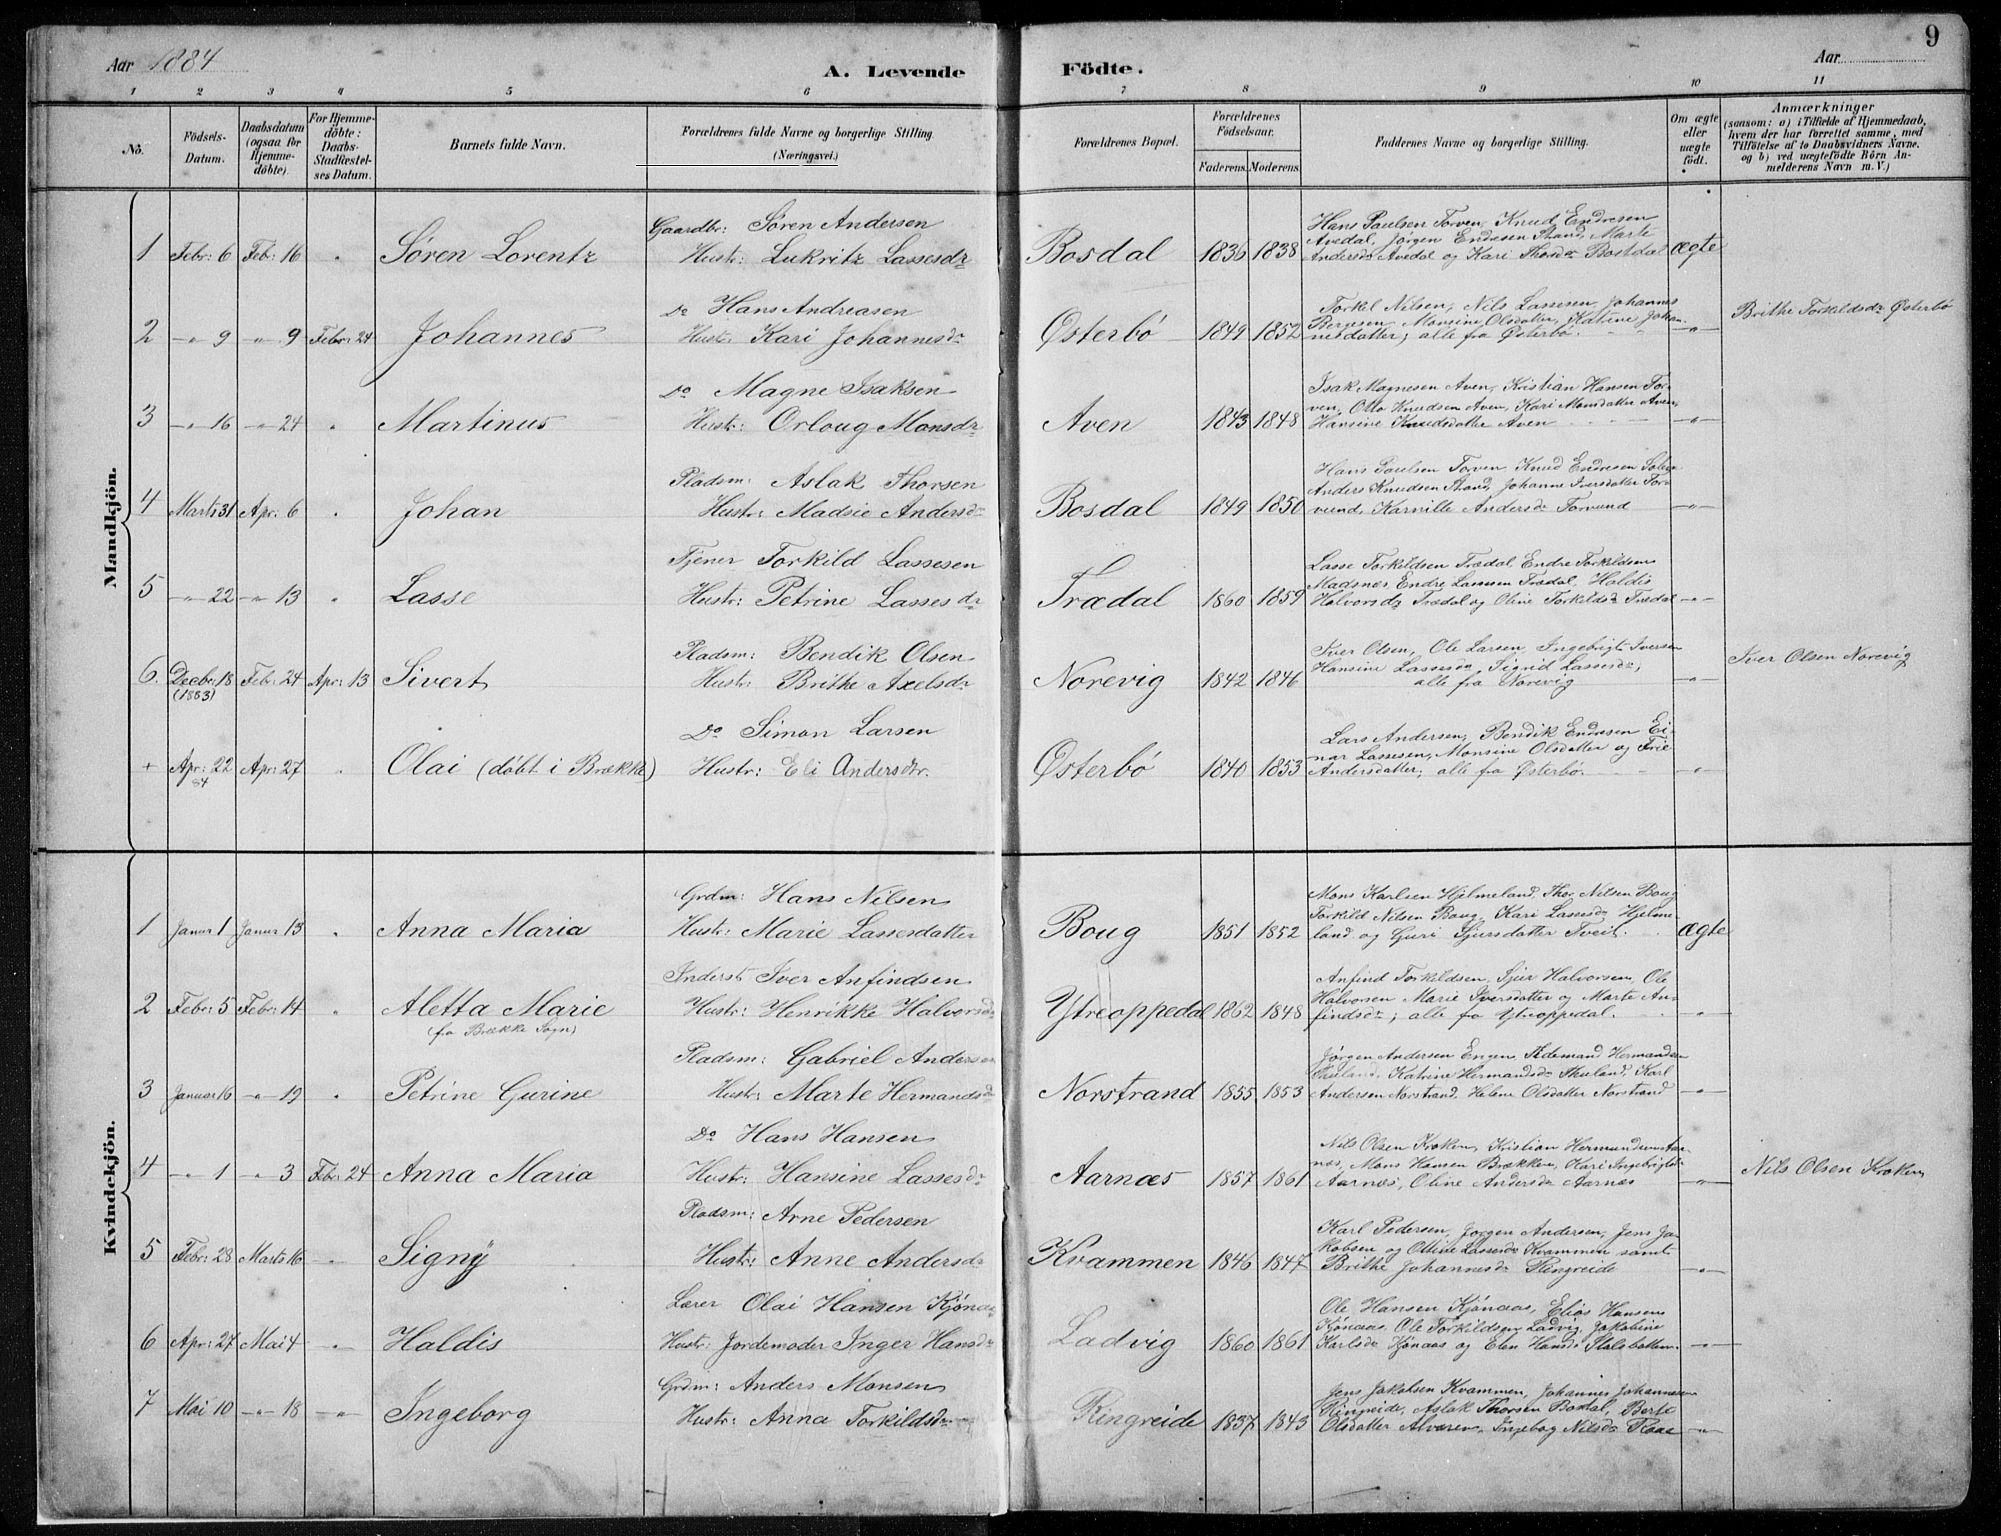 Aar 1884
A. Levende
Födte.
9
Aar
1 2 3 4 5 6 7 8 9 10 11
No.
Födsels-
Datum.
Daabsdatum
(ogsaa for
Hjemme-
döbte).
For Hjemme-
döbte:
Daabs-
Stadfæstel-
ses Datum.
Barnets fulde Navn.
Forældrenes fulde Navne og borgerlige Stilling.
(Næringsvei.)
Forældrenes Bopæl.
Forældrenes
Födselsaar.
Faderens. Moderens.
Faddernes Navne og borgerlige Stilling.
Om ægte
eller
uægte
födt.
Anmærkninger
(saasom: a) i Tilfælde af Hjemmedaab,
hvem der har forrettet samme, med
Tilföielse af to Daabsvidners Navne.
og b) ved uægtefödte Börn An-
melderens Navn m. V.)
Mandkjön.
Gaardbr: Søren Andersen
Hustr: Lukritz Lassesdr
1 Febr: 6 Feb: 16 " Søren Lorentz
Bosdal 1836 1838
Hans Poulsen Torven, Knud Endresen
Avedal, Jørgen Endresen Strand, Marte
Andersdr Avedal og Kari Thorsdr Bostdal
ægte
Do Hans Andreasen
Hustr: Kari Johannesdr
2 -"- 9 -"- 9 Febr: 24 Johannes
Østerbö 1849 1852
Torkel Nilsen, Nils Lassesen, Johannes
Bergesen, Monsine Olsdatter, Katrine Johan-
nesdatter; alle fra Østerbö.
-"-
Brithe Torkildsdr Østerbö
Do Magne Isaksen
Hustr: Orloug Monsdr
3 -"- 16 -"- 24 " Martinus
Aven 1843 1848
Isak Magnesen Aven, Kristian Hansen Tor-
ven, Otto Knudsen Aven, Kari Monsdatter Aven,
Hansine Knudsdatter Aven
-"-
Pladsm: Aslak Thorsen
Hustr: Madsie Andersdr
4 Marts 31 Apr: 6 " Johan
Bosdal 1849 1850
Hans Poulsen Torven, Knud Endresen
Anders Knudsen Strand, Johanne Iversdatter Tor-
vund, Karville Andersdr Torvund
-"-
Tjener Torkild Lassesen
Hustr: Petrine Lassesdr
5 -"- 22 -"- 13 " Lasse
Trædal 1860 1859
Lasse Torkildsen Trædal, Endre Torkildsen
Madsnes, Endre Lassesen Trædal, Haldis
Halvorsdr Trædal og Oline Torkildsdr Trædal
-"-
Pladsm: Bendik Olsen
Hustr: Brithe Axelsdr
6. Decbr: 18 Feb: 24 Apr: 13 Sivert
(1883)
Norevig 1842 1846
Iver Olsen, Ole Larsen, Ingebrigt Iversen
Hansine Lassesdr, Sigrid Lassesdr;
alle fra Norevig
-"-
Iver Olsen Norevig
Do Simon Larsen
Hustr: Eli Andersdr.
+ Apr: 22 Apr: 27 " Olai (döbt i Brække)
84
Østerbö 1840 1853
Lars Andersen, Bendik Endresen, Ei-
nar Lassesen, Monsine Olsdatter og Frie
Andersdatter; alle fra Østerbö.
-"-
Kvindekjön.
Grdm: Hans Nilsen
Hustr: Marie Lassesdatter
1 Januar 1 Januar 13 " Anna Maria
Boug 1851 1852
Mons Karlsen Hjelmeland, Thor Nilsen Boug
Torkild Nilsen Boug, Kari Lassesdr Hjelme-
land og Guri Sjursdatter Tveit.
ægte
Inderst Iver Anfindsen
Hustr: Henrikke Halvorsdr
2 Febr: 5 Febr: 14 " Aletta Marie
(fra Brække Sogn)
Ytreoppedal 1862 1848
Anfind Torkildsen, Sjur Halvorsen, Ole
Halvorsen Marie Iversdatter og Marte An-
findsdr; alle fra Ytreoppedal.
-"-
Pladsm: Gabriel Andersen
Hustr: Marte Hermandsdr
3 Januar 16 -"- 19 " Petrine Gurine
Norstrand 1855 1853
Jørgen Andersen Engen, Tidemand Hermandsen
Katrine Hermandsdr Karl
Andersen Norstrand, Helene Olsdatter Norstrand
-"-
Do Hans Hansen
Hustr: Hansine Lassesdr
4 -"- 1 -"- 3 Febr: 24 Anna Maria
Aarnæs 1857 1861
Nils Olsen Kroken, Kristian Hermundsen Aar-
næs, Mons Hansen Brækken, Kari Ingebrigtsdr
Aarnæs, Oline Andersdr Aarnæs
-"-
Nils Olsen Kroken
Pladsm: Arne Pedersen
Hustr: Anne Andersdr
5 Febr: 28 Marts 16 -"- Signÿ
Kvammen 1846 1847
Karl Pedersen, Jorgen Andersen, Jens Ja-
kobsen og Ottine Lassesdr Kvammen samt
Brithe Johannesdr Ringreide
-"-
Lærer Olai Hansen Kjönaas
Hustr: Jordemoder Inger Hansdr
6 Apr: 27 Mai 4 -"- Haldis
Ladvig 1860 1861
Ole Hansen Kjönaas, Elias Hansen
Kjönaas, Ole Torkildsen Ladvig, Jakobine
Karlsdr Kjönaas og Elen Hansdr Stalsbotten.
-"-
Grdm: Anders Monsen
Hustr: Anna Torkildsdr
7 Mai 10 -"- 18 -"- Ingeborg
Ringreide 1837 1843
Jens Jakobsen Kvammen, Johannes Johannesen
Ringreide, Aslak Thorsen Bosdal, Berte
Olsdatter Alværen, Ingebog Nilsdr Raae
-"-